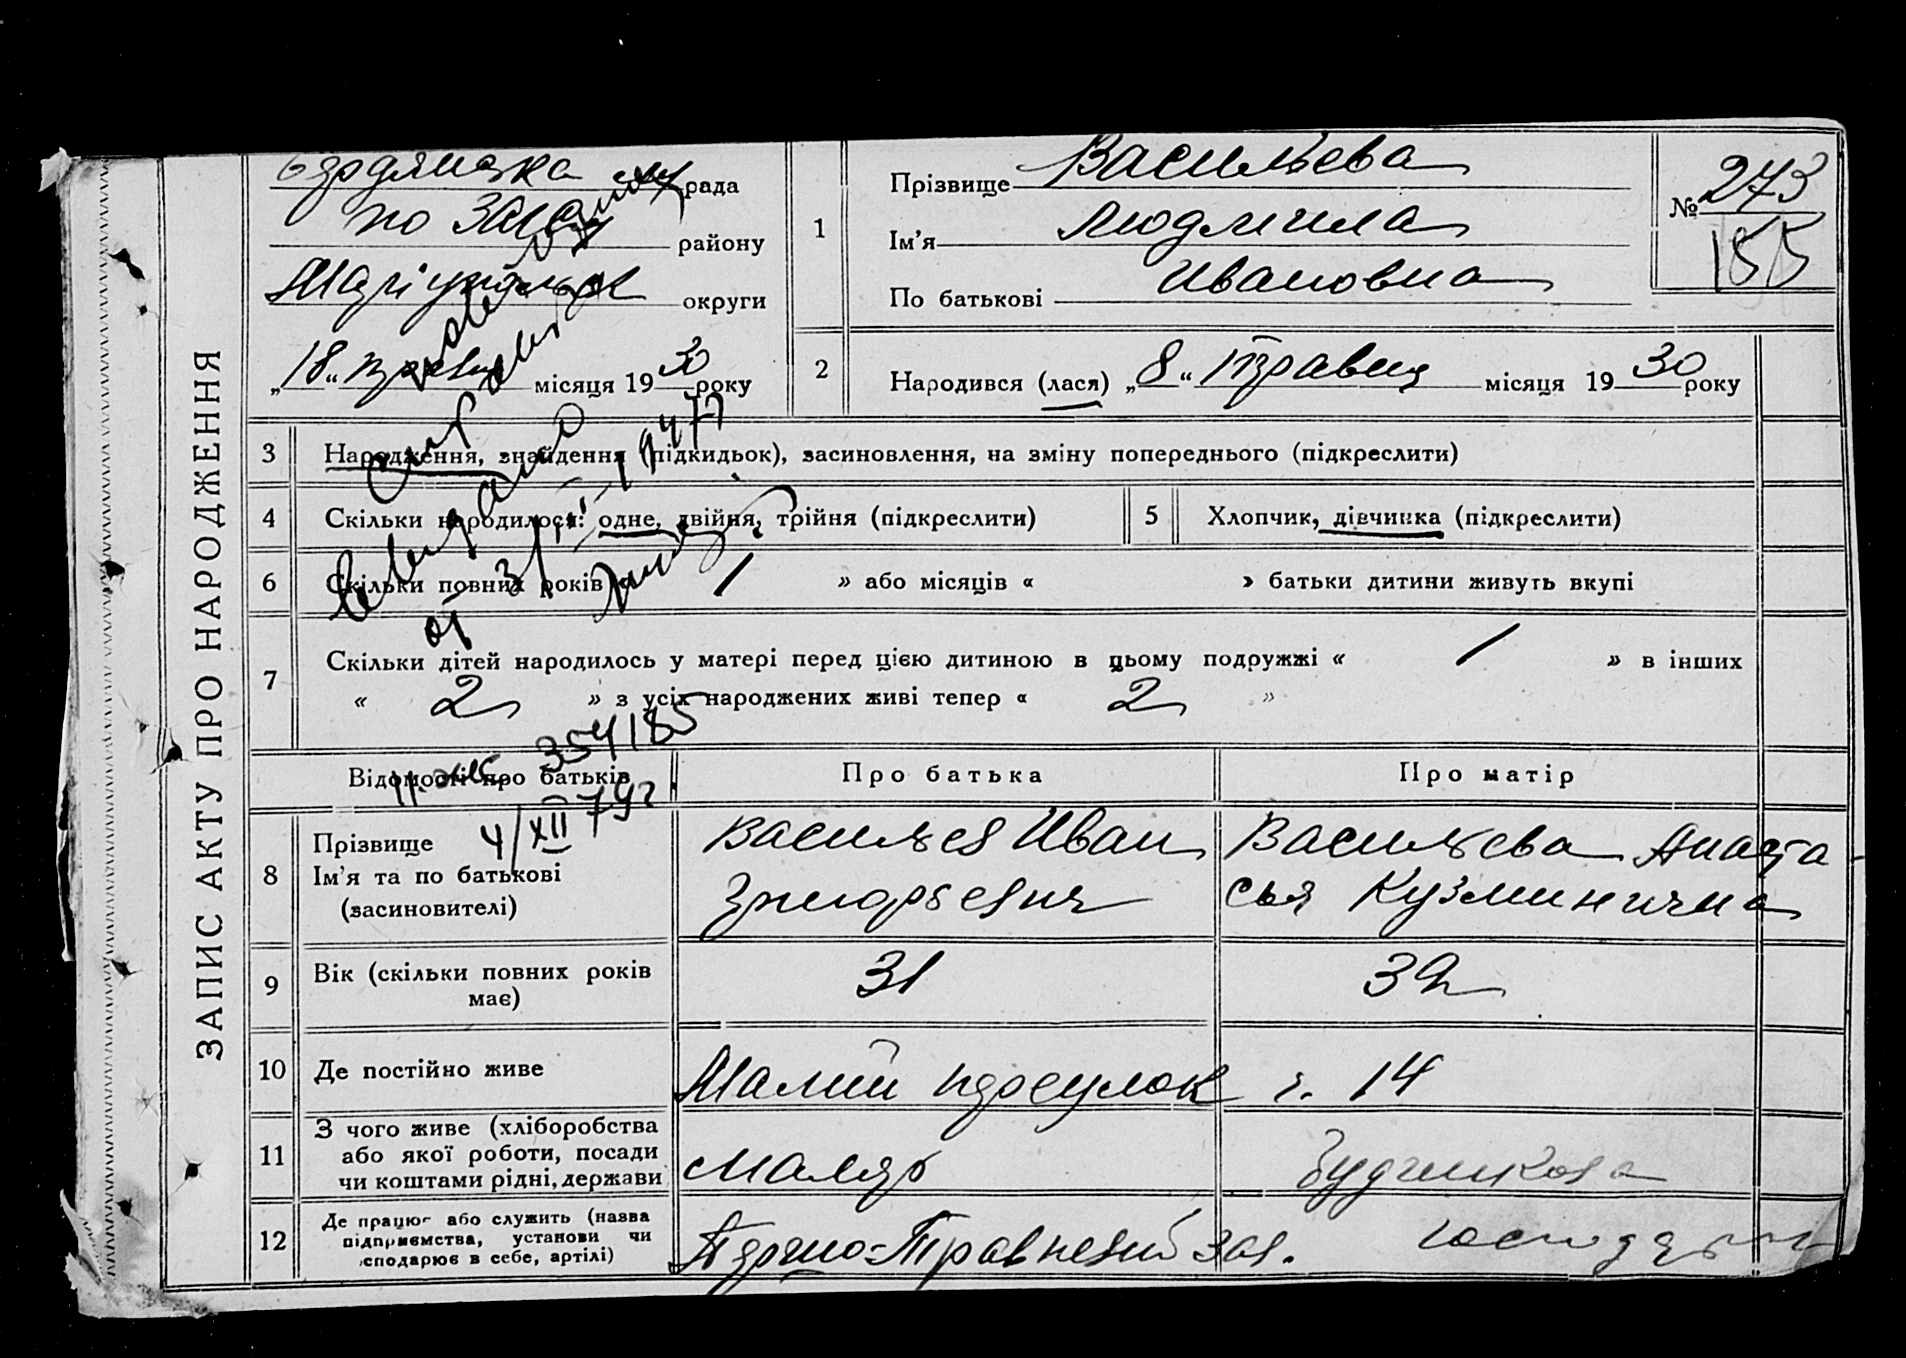 ЗАПИС АКТУ ПРО НАРОДЖЕННЯ
Бердянська рада
району
Маріупольск округи
„18“ травня місяця 1930 року
1 Прізвище Васильева
Ім’я Людмила
По батькові Ивановна
№ 273
155
2 Народився (лася) „8“ травня місяця 1930 року
3 Народження, знайдення (підкидьок), засиновлення, на зміну попереднього (підкреслити)
4 Скільки народилося: одне, двійня, трійня (підкреслити)
5 Хлопчик, дівчинка (підкреслити)
6 Скільки повних років 1 » або місяців « » батьки дитини живуть вкупі
7 Скільки дітей народилось у матері перед цією дитиною в цьому подружжі « 1 » в інших
« 2 » з усіх народжених живі тепер « 2 »
354185
4/XII 79г
Відомості про батьків Про батька Про матір
8 Прізвище
Ім’я та по батькові
(засиновителі)
Васильев Иван
Григорьевич
Васильева Анаста
сья Кузминична
9 Вік (скільки повних років
має)
31
32
10 Де постійно живе
Малий переулок г. 14
11 З чого живе (хліборобства
або якої роботи, посади
чи коштами рідні, держави
Маляр
12 Де працює або служить (назва
підприємства, установи чи
сподарює в себе, артілі)
Першо-Травневий зав.